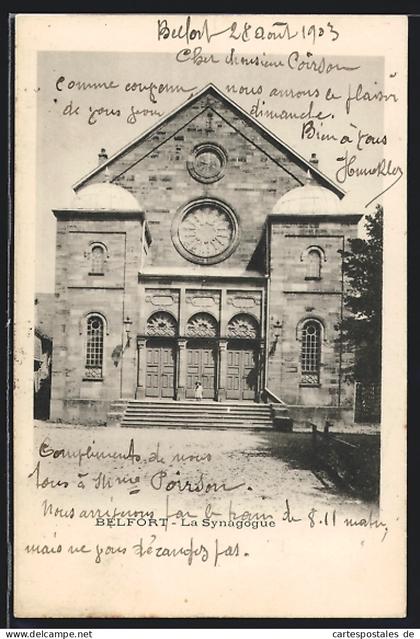 Belfort 28 août 1903
Cher monsieur Poirson
Comme convenu, nous aurons le plaisir
de vous voir dimanche.
Bien à vous
Compliments de nous
tous à Mme Poirson.
Nous arriverons par le train de 8.11 matin
BELFORT - La Synagogue
mais ne vous dérangez pas.
© cartespostales.com
https://www.cartespostales.com